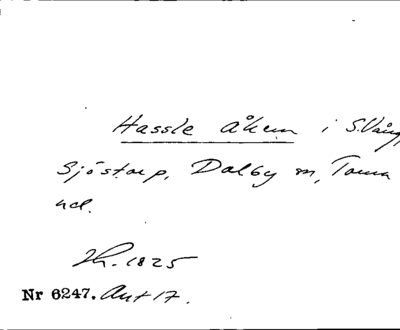 Hassle åken i S.Vång,
Sjöstorp, Dalby sn, Torna
hd.
Ht. 1825
Nr 6247. Ant 17.